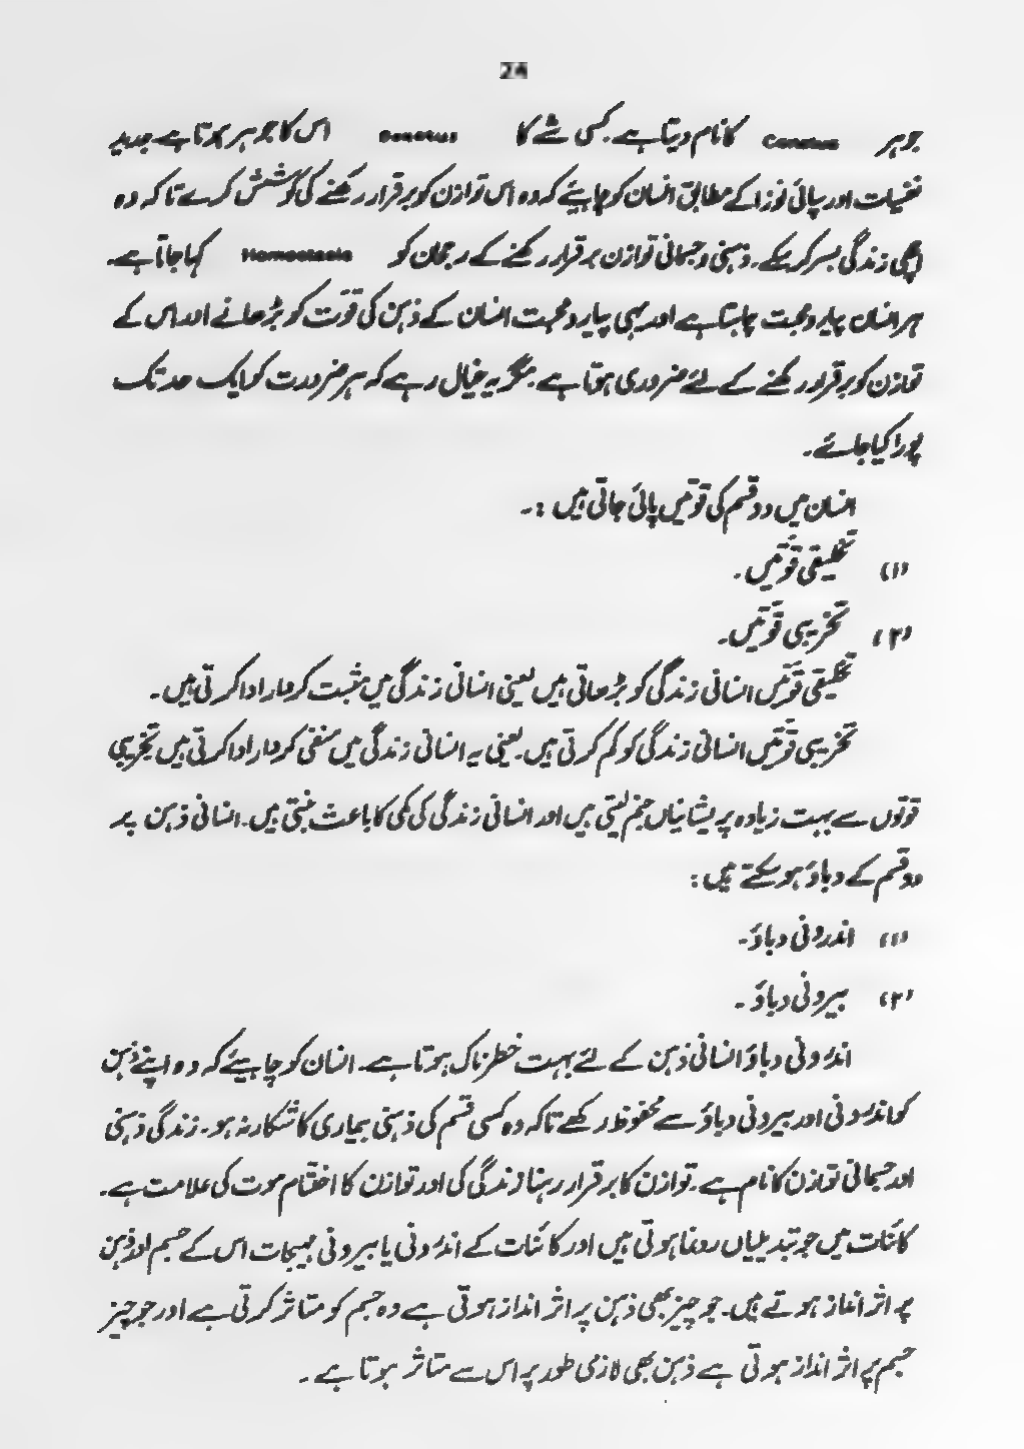 24
جوہر Conatus کا نام دیتا ہے۔ کسی شے کا Conatus اس کا جوہر ہوتا ہے جدید
نفسیات اور سپائی نوزا کے مطابق انسان کو چاہیئے کہ وہ اس توازن کو برقرار رکھنے کی کوشش کرے تاکہ وہ
اچھی زندگی بسر کر سکے۔ ذہنی و جسمانی توازن برقرار رکھنے کے رجحان کو Homeostasis کہا جاتا ہے۔
ہر انسان پیار و محبت چاہتا ہے اور یہی پیار و محبت انسان کے ذہن کی قوّت کو بڑھانے اور اس کے
توازن کو برقرار رکھنے کے لئے ضروری ہوتا ہے۔ مگر یہ خیال رہے کہ ہر ضرورت کو ایک حد تک
پورا کیا جائے۔
انسان میں دو قسم کی قوتیں پائی جاتی ہیں :۔
(۱) تخلیقی قوّتیں۔
(۲) تخریبی قوّتیں۔
تخلیقی قوّتیں انسانی زندگی کو بڑھاتی ہیں یعنی انسانی زندگی میں مثبت کردار ادا کرتی ہیں۔
تخریبی قوّتیں انسانی زندگی کو کم کرتی ہیں۔ یعنی یہ انسانی زندگی میں منفی کردار ادا کرتی ہیں تخریبی
قوتوں سے بہت زیادہ پریشانیاں جنم لیتی ہیں اور انسانی زندگی کی کمی کا باعث بنتی ہیں۔ انسانی ذہن پر
دو قسم کے دباؤ ہو سکتے ہیں :
(۱) اندرونی دباؤ۔
(۲) بیرونی دباؤ۔
اندرونی دباؤ انسانی ذہن کے لئے بہت خطرناک ہوتا ہے۔ انسان کو چاہیئے کہ وہ اپنے ذہن
کو اندرونی اور بیرونی دباؤ سے محفوظ رکھے تاکہ وہ کسی قسم کی ذہنی بیماری کا شکار نہ ہو۔ زندگی ذہنی
اور جسمانی توازن کا نام ہے۔ توازن کا برقرار رہنا زندگی کی اور توازن کا اختتام موت کی علامت ہے۔
کائنات میں جو تبدیلیاں رونما ہوتی ہیں اور کائنات کے اندرونی یا بیرونی مہیجات اس کے جسم اور ذہن
پر اثر انداز ہوتے ہیں۔ جو چیز بھی ذہن پر اثر انداز ہوتی ہے وہ جسم کو متاثر کرتی ہے اور جو چیز
جسم پر اثر انداز ہوتی ہے ذہن بھی لازمی طور پر اس سے متاثر ہوتا ہے۔